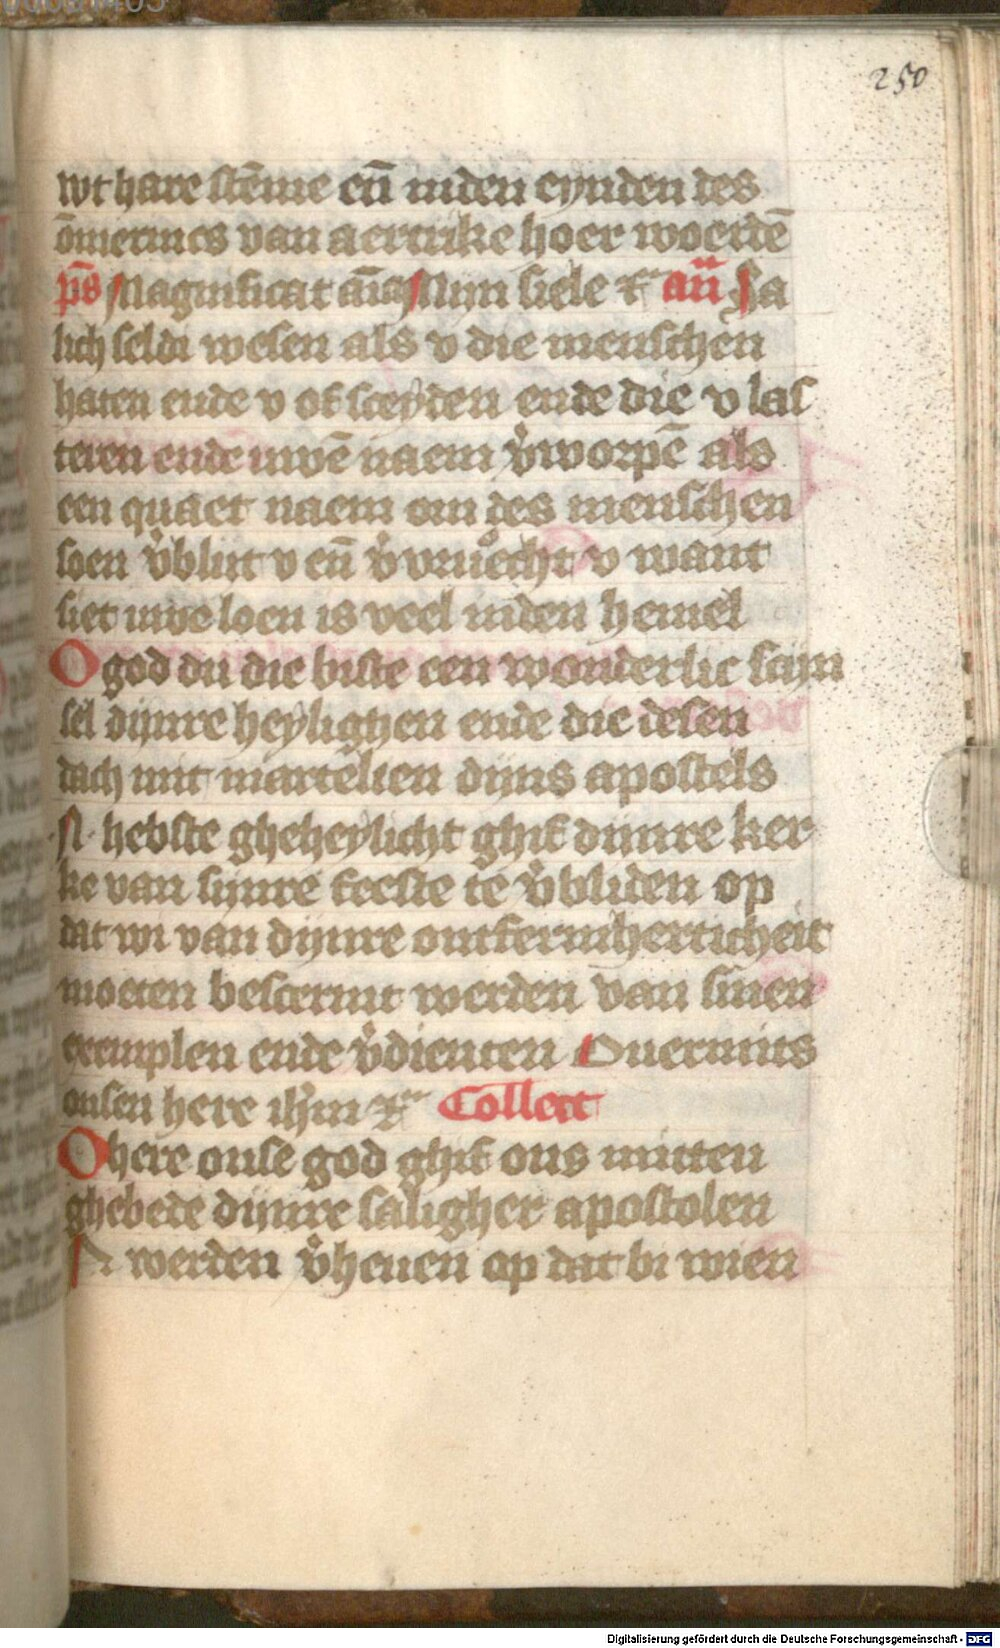 250
wt hare stēme en̄ inden eynden des
ōmerincs van aertrike hoer woerdē
p̄s Magnificat aīa Mijn siele ⁊c an̄ Sa
lich seldi wesen als v die menschen
haten ende v of sceyden ende die v las
teren ende uwē naem v̉worpē als
een quaet naem om des menschen
soen v̉blijt v en̄ v̉vruecht v want
siet uwe loen is veel inden hemel
O god du die biste een wonderlic scijn
sel dijnre heylighen ende die desen
dach mit martelien dijns apostels
.N. hebste gheheylicht ghif dijnre ker
ke van sijnre feeste te v̉bliden op
dat wi van dijnre ontfermherticheit
moeten bescermt werden van sinen
exemplen ende v̉dienten Ouermits
onsen here ihm̄ ⁊c Collect
O here onse god ghif ons mitten
ghebede dijnre saligher apostolen
N. werden v̉heuen op dat bi wien
Digitalisierung gefördert durch die Deutsche Forschungsgemeinschaft - DFG